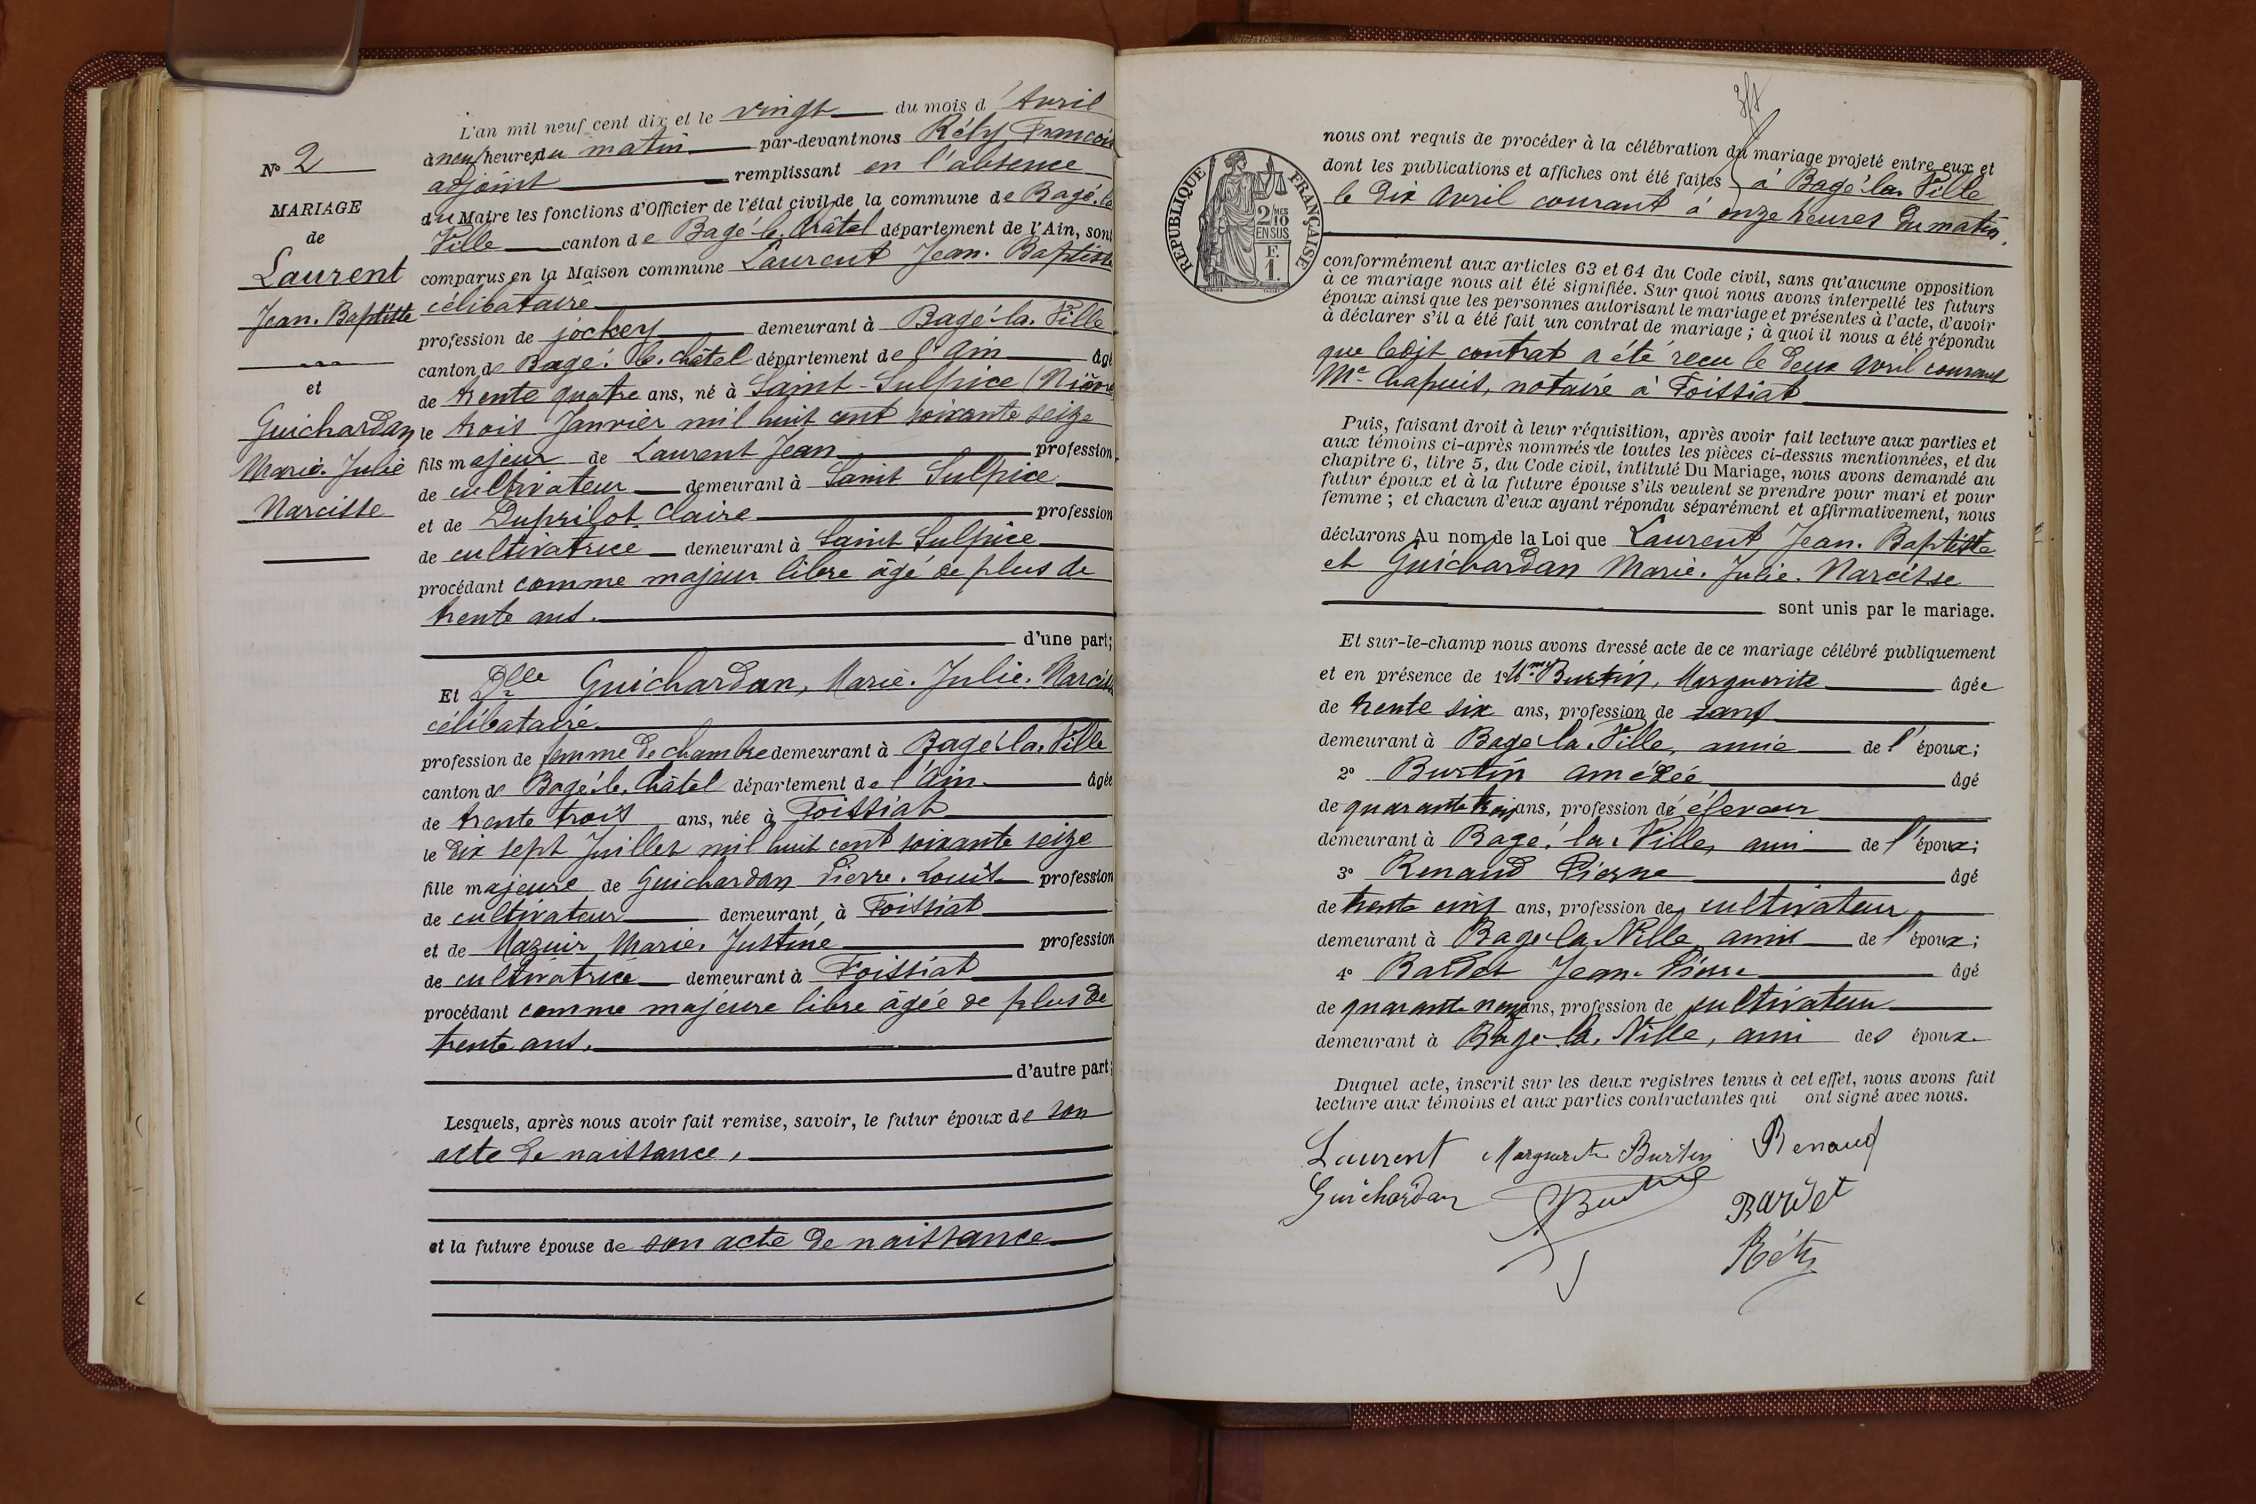 N° 2
MARIAGE
de
Laurent
Jean-Baptiste
et
Guichardan
Marie-Julie
Narcisse
L'an mil neuf cent dix et le vingt du mois d'Avril
à neuf heures du matin par-devant nous Réty François
adjoint remplissant en l'absence
du Maire les fonctions d'Officier de l'état civil de la commune de Bagé-la
Ville canton de Bagé-le-Châtel département de l'Ain, sont
comparus en la Maison commune Laurent Jean-Baptiste
célibataire
profession de jockey demeurant à Bagé-la-Ville
canton de Bagé-le-Châtel département de l'Ain âgé
de trente quatre ans, né à Saint-Sulpice (Nièvre
le trois Janvier mil huit cent soixante seize
fils majeur de Laurent Jean profession
de cultivateur demeurant à Saint Sulpice
et de Duprilot Claire profession
de cultivatrice demeurant à Saint Sulpice
procédant comme majeur libre âgé de plus de
trente ans.
d'une part;
Et Dlle Guichardan, Marie-Julie-Narcisse
célibataire
profession de femme de chambre demeurant à Bagé-la-Ville
canton de Bagé-le-Châtel département de l'Ain âgée
de trente trois ans, née à Foissiat
le dix sept Juillet mil huit cent soixante seize
fille majeure de Guichardan Pierre-Louis profession
de cultivateur demeurant à Foissiat
et de Mazuir Marie-Justine profession
de cultivatrice demeurant à Foissiat
procédant comme majeure libre âgée de plus de
trente ans.
d'autre part;
Lesquels, après nous avoir fait remise, savoir, le futur époux de son
acte de naissance,
et la future épouse de son acte de naissance
nous ont requis de procéder à la célébration du mariage projeté entre eux et
dont les publications et affiches ont été faites à Bagé-la-Ville
le dix avril courant à onze heures du matin.
RÉPUBLIQUE FRANÇAISE
2/MES
10
EN SUS
F.
1.
conformément aux articles 63 et 64 du Code civil, sans qu'aucune opposition
à ce mariage nous ait été signifiée. Sur quoi nous avons interpellé les futurs
époux ainsi que les personnes autorisant le mariage et présentes à l'acte, d'avoir
à déclarer s'il a été fait un contrat de mariage; à quoi il nous a été répondu
que ledit contrat a été reçu le deux avril courant
Me Chapuis, notaire à Foissiat
Puis, faisant droit à leur réquisition, après avoir fait lecture aux parties et
aux témoins ci-après nommés de toutes les pièces ci-dessus mentionnées, et du
chapitre 6, titre 5, du Code civil, intitulé Du Mariage, nous avons demandé au
futur époux et à la future épouse s'ils veulent se prendre pour mari et pour
femme; et chacun d'eux ayant répondu séparément et affirmativement, nous
déclarons Au nom de la Loi que Laurent, Jean-Baptiste
et Guichardan Marie-Julie-Narcisse
sont unis par le mariage.
Et sur-le-champ nous avons dressé acte de ce mariage célébré publiquement
et en présence de 1° Burtin, Marguerite âgée
de trente six ans, profession de sans
demeurant à Bagé-la-Ville, amie de l'époux;
2° Burtin Amédée âgé
de quarante trois ans, profession de éleveur
demeurant à Bagé-la-Ville, ami de l'époux;
3° Renaud Pierre âgé
de trente cinq ans, profession de cultivateur
demeurant à Bagé-la-Ville ami de l'époux;
4° Bardet Jean-Pierre âgé
de quarante ans, profession de cultivateur
demeurant à Bagé-la-Ville, ami des époux.
Duquel acte, inscrit sur les deux registres tenus à cet effet, nous avons fait
lecture aux témoins et aux parties contractantes qui ont signé avec nous.
Laurent Marguerite Burtin Renaud
Guichardan Burtin Bardet
Réty